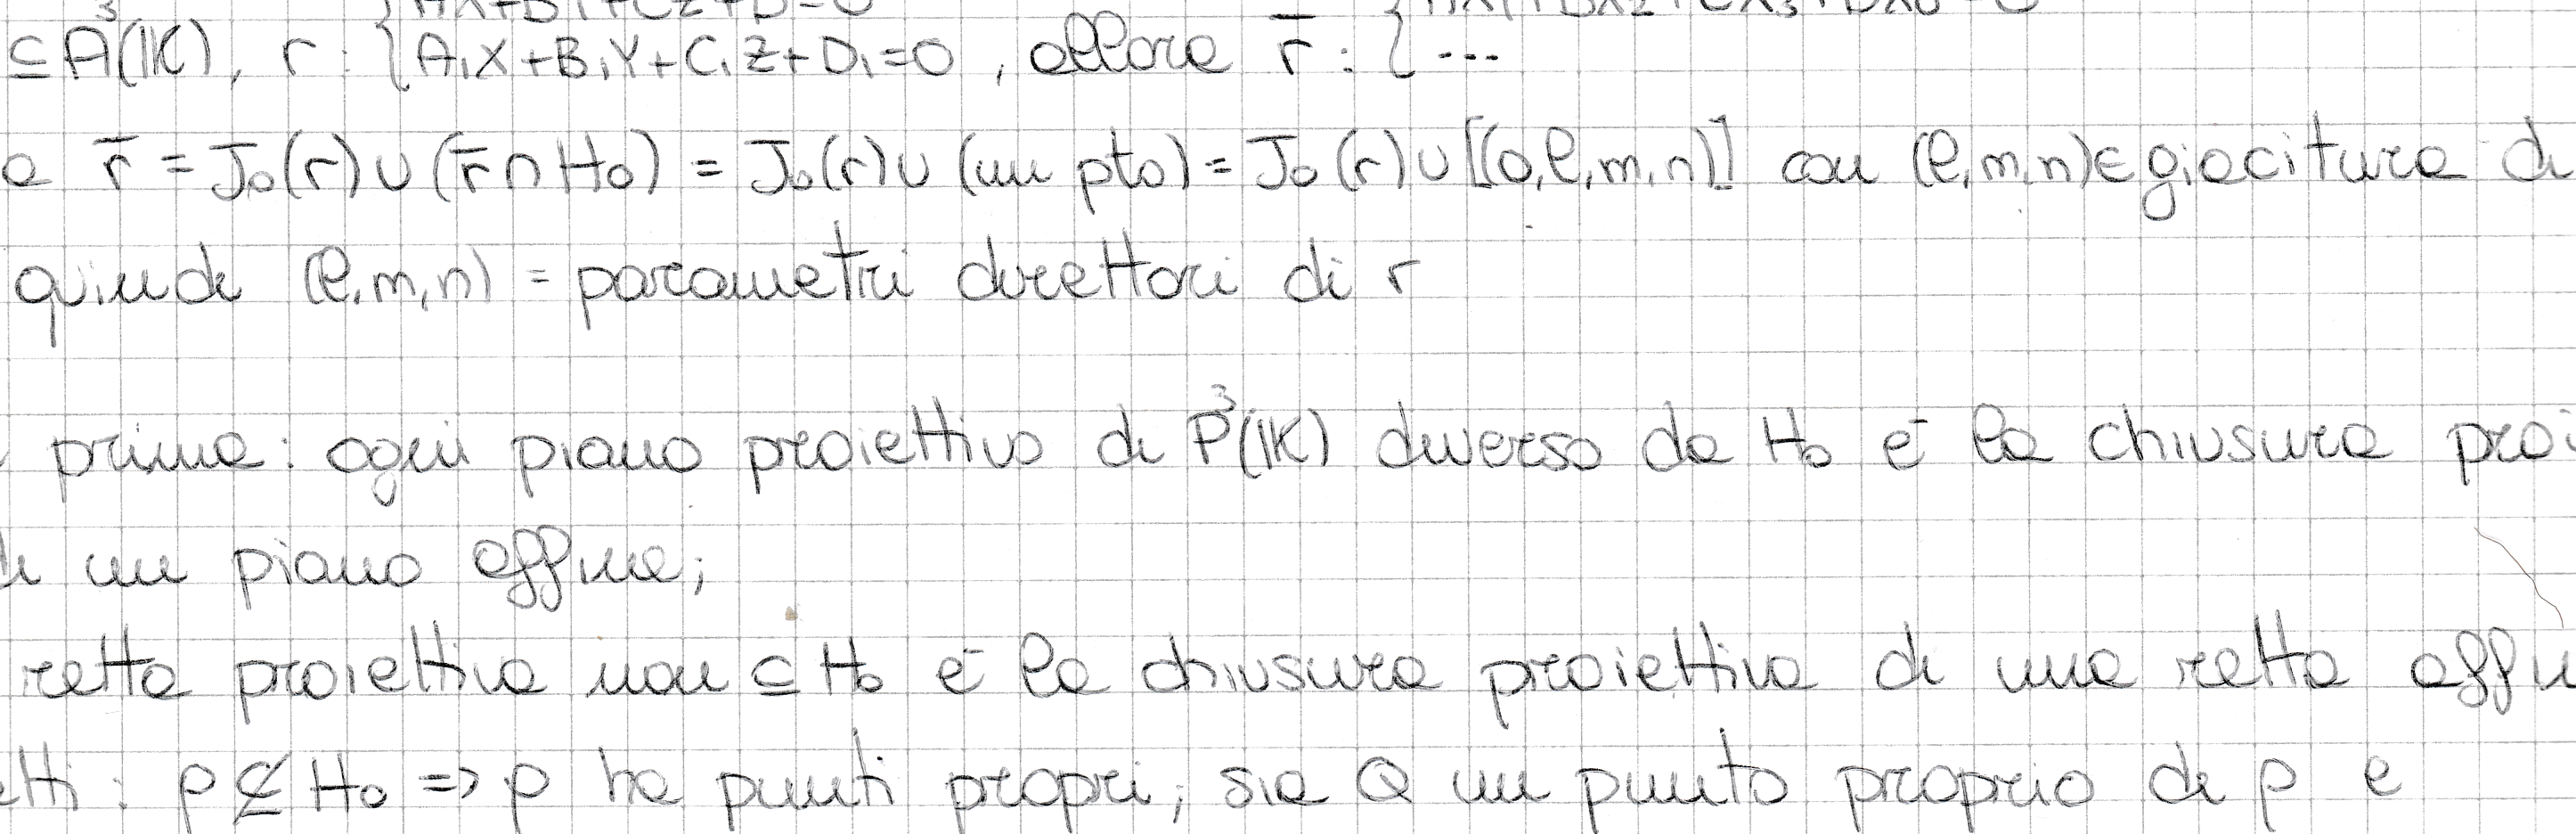 AX+BY+CZ+D=0
⊆A³(K), r: { A₁X+B₁Y+C₁Z+D₁=0 , allora r̄ : { ...
e r̄ = J₀(r)∪(r̄∩H₀) = J₀(r)∪(un pto) = J₀(r)∪[(0,l,m,n)] con (l,m,n)∈giacitura di
quindi (l,m,n) = parametri direttori di r
prima: ogni piano proiettivo di P³(K) diverso da H₀ è la chiusura proi
di un piano affine;
retta proiettiva non ⊆ H₀ è la chiusura proiettiva di una retta affin
etti: ρ⊈H₀ => ρ ha punti propri; sia Q un punto proprio di ρ e